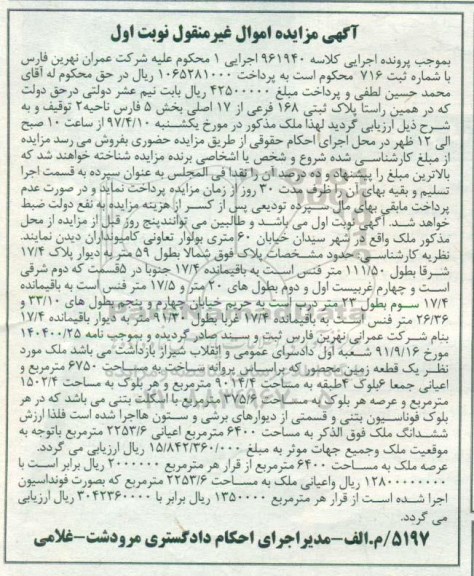 آگهی مزایده اموال غیرمنقول نوبت اول
بموجب پرونده اجرایی کلاسه ۹۶۱۹۴۰ اجرایی ۱ محکوم علیه شرکت عمران نهرین فارس
با شماره ثبت ۷۱۶ محکوم است به پرداخت ۱۰۶۵۲۸۱۰۰۰ ریال در حق محکوم له آقای
محمد حسین لطفی و پرداخت مبلغ ۴۲۵۰۰۰۰۰ ریال بابت نیم عشر دولتی درحق دولت
که در همین راستا پلاک ثبتی ۱۶۸ فرعی از ۱۷ اصلی بخش ۵ فارس ناحیه۲ توقیف و به
شرح ذیل ارزیابی گردید لهذا ملک مذکور در مورخ یکشنبه ۹۷/۴/۱۰ از ساعت ۱۰ صبح
الی ۱۲ ظهر در محل اجرای احکام حقوقی از طریق مزایده حضوری بفروش می رسد مزایده
از مبلغ کارشناسی شده شروع و شخص یا اشخاصی برنده مزایده شناخته خواهند شد که
بالاترین مبلغ را پیشنهاد و ده درصد آن را نقدا فی المجلس به عنوان سپرده به قسمت اجرا
تسلیم و بقیه بهای آن را ظرف مدت ۳۰ روز از زمان مزایده پرداخت نماید و در صورت عدم
پرداخت مابقی بهای مال سپرده تودیعی پس از کسر از هزینه مزایده به نفع دولت ضبط
خواهد شد. آگهی نوبت اول می باشد و طالبین می توانندپنج روز قبل از مزایده از محل
مذکور ملک واقع در شهر سیدان خیابان ۶۰ متری بولوار تعاونی کامیونداران دیدن نمایند.
نظریه کارشناسی: حدود مشخصات پلاک فوق شمالا بطول ۵۹ متر به دیوار پلاک ۱۷/۴
شرقا بطول ۱۱۱/۵۰ متر فنس است به باقیمانده ۱۷/۴ جنوبا در ۵قسمت که دوم شرقی
است و چهارم غربیست اول و دوم بطول های ۲۰ متر و ۱۷/۵ متر فنس است به باقیمانده
۱۷/۴ سوم بطول ۲۳ متر درب است به حریم خیابان چهارم و پنجم بطول های ۳۳/۱۰ و
۲۶/۳۶ متر فنس است به باقیمانده ۱۷/۴ غربا بطول ۹۱/۳۰ متر به دیوار باقیمانده ۱۷/۴
بنام شرکت عمرانی نهرین فارس ثبت و سند صادر گردیده و بموجب نامه ۱۴۰۴۰۰/۲۵
مورخ ۹۱/۹/۱۶ شعبه اول دادسرای عمومی و انقلاب شیراز بازداشت می باشد ملک مورد
نظر یک قطعه زمین محصور که براساس پروانه ساخت به مساحت ۶۷۵۰ مترمربع و
اعیانی جمعا ۶بلوک ۴طبقه به مساحت ۹۰۱۴/۴ مترمربع و هر بلوک به مساحت ۱۵۰۲/۴
مترمربع و عرصه هر بلوک به مساحت ۳۷۵/۶ مترمربع با اسکلت بتنی می باشد که در هر
بلوک فونداسیون بتنی و قسمتی از دیوارهای برشی و ستون هااجرا شده است فلذا ارزش
ششدانگ ملک فوق الذکر به مساحت ۶۴۰۰ مترمربع اعیانی ۲۲۵۳/۶ مترمربع باتوجه به
موقعیت ملک وجمیع جهات موثر به مبلغ ۱۵/۸۴۲/۳۶۰/۰۰۰ ریال ارزیابی می گردد.
عرصه ملک به مساحت ۶۴۰۰ مترمربع از قرار هر مترمربع ۲۰۰۰۰۰۰ ریال برابر است با
۱۲۸۰۰۰۰۰۰۰۰ ریال واعیانی ملک به مساحت ۲۲۵۳/۶ مترمربع که بصورت فونداسیون
اجرا شده است از قرار هر مترمربع ۱۳۵۰۰۰۰ ریال برابر با ۳۰۴۲۳۶۰۰۰۰ ریال ارزیابی
می گردد.
۵۱۹۷/م.الف-مدیراجرای احکام دادگستری مرودشت-غلامی